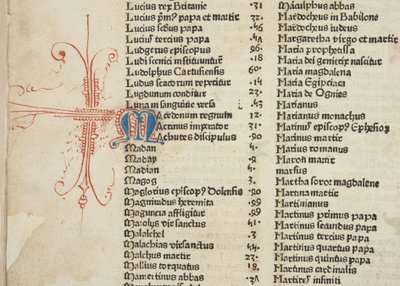 Lucius rex Britanie .31
Lucius pmꝰ papa et martir 32.
Lucius scd̓us papa .46
Lucius tercius papa .41
Ludgerus episcopus 96.
Ludi scenici instituunťur .18
Ludolphus Cartusiensis 60.
Ludus scacorum repertur .14
Lugdunum conditur 23.
Luna in sanguinē versa .43
Macedonum regnum 12.
Macrinus imperator 31
Machutes discipulus .90
Madan 4.
Maday 9.
Madian 4.
Magog 3.
Maglorius episcopꝰ Dolensis .90
Magnitudus heremita .99
Maguncia affligitur .99
Malalehel 3.
Malachias vir sanctus
Malchus martir 23.
Mallius torquatus 18.
Mamertinus abbas
Maculphus abbas
Mardocheus in Babilone
Mardocheus iudeus
Margaretha virgo et martir
Maria prophetissa
Maria dei genetrix nascitur
Maria magdalena
Maria Egiptiaca
Maria de Ognies
Marianus
Marianus monachus
Marinus martir
Marius romanus
Martha soror magdalene
Martina martir
Martinianus
Martinus primus papa
Martinus secundus papa
Martinus tercius papa
Martinus quartus papa
Martinus quintus papa
Martinus cardinalis
Martires infiniti